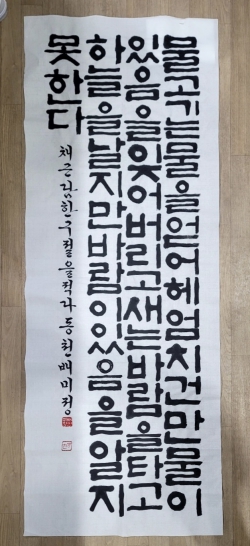 물고기는물을얻어헤엄치건만물이
있음을잊어버리고새는바람을타고
하늘을날지만바람이있음을알지
못한다
채근담한구절을적다